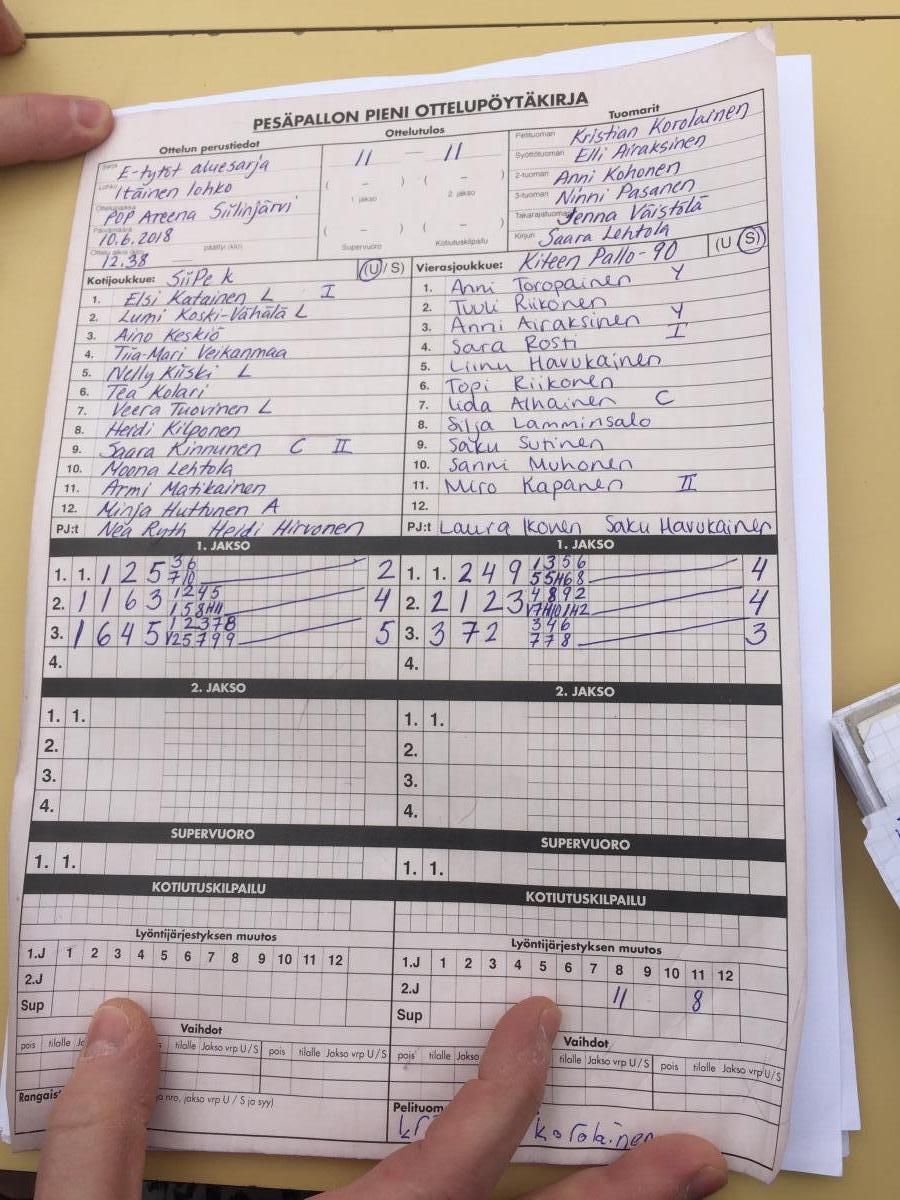 PESÄPALLON PIENI OTTELUPÖYTÄKIRJA
Ottelun perustiedot
Ottelutulos
Tuomarit
Sarja E-tytöt aluesarja
Lohko Itäinen lohko
Ottelupaikka POP Areena Siilinjärvi
Päivämäärä 10.6.2018
12.38 päättyi (klo)
11 – 11
( – ) ( – )
1. jakso 2. jakso
( – ) ( – )
Supervuoro Kotiutuskilpailu
Pelituomari Kristian Korolainen
Syöttötuomari Elli Airaksinen
2-tuomari Anni Kohonen
3-tuomari Ninni Pasanen
Takarajatuomari Jenna Väistölä
Kirjuri Saara Lehtola
Kotijoukkue: SiiPe k (U/S)
1. Elsi Katainen L I
2. Lumi Koski-Vähälä L
3. Aino Keskiö
4. Tiia-Mari Veikanmaa
5. Nelly Kiiski L
6. Tea Kolari
7. Veera Tuovinen L
8. Heidi Kilponen
9. Saara Kinnunen C II
10. Moona Lehtola
11. Armi Matikainen
12. Minja Huttunen A
PJ:t Nea Ryth Heidi Hirvonen
Vierasjoukkue: Kiteen Pallo-90 (U S)
1. Anni Toropainen Y
2. Tuuli Riikonen
3. Anni Airaksinen Y
4. Sara Rosti I
5. Liinu Havukainen
6. Topi Riikonen
7. Iida Alhainen C
8. Silja Lamminsalo
9. Saku Sutinen
10. Sanni Muhonen
11. Miro Kapanen II
12.
PJ:t Laura Ikonen Saku Havukainen
1. JAKSO
1. 1. 1 2 5 3 6 7 10 2
2. 1 1 6 3 1 2 4 5 1 5 8 H11 4
3. 1 6 4 5 1 2 3 7 8 V2 5 7 9 9 5
4.
1. JAKSO
1. 1. 2 4 9 1 3 5 6 5 5 H6 8 4
2. 2 1 2 3 4 8 9 2 V7 H10 1 H2 4
3. 3 7 2 3 4 6 7 7 8 3
4.
2. JAKSO
1. 1.
2.
3.
4.
2. JAKSO
1. 1.
2.
3.
4.
SUPERVUORO
1. 1.
SUPERVUORO
1. 1.
KOTIUTUSKILPAILU
KOTIUTUSKILPAILU
Lyöntijärjestyksen muutos
1.J 1 2 3 4 5 6 7 8 9 10 11 12
2.J
Sup
Lyöntijärjestyksen muutos
1.J 1 2 3 4 5 6 7 8 9 10 11 12
2.J 11 8
Sup
Vaihdot
pois tilalle tilalle Jakso vrp U/S pois tilalle Jakso vrp U/S
Vaihdot
pois tilalle Jakso tilalle Jakso vrp U/S pois tilalle Jakso vrp U/S
nro, jakso vrp U / S ja syy)
Korolainen